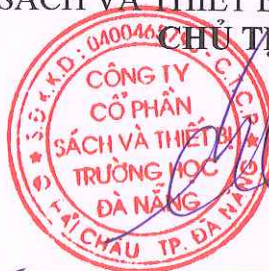 SÁCH VÀ THIẾT B
CHỦ T
S.Đ.K.K.D: 040046 - C.T.C.P
CÔNG TY
CỔ PHẦN
SÁCH VÀ THIẾT BỊ
TRƯỜNG HỌC
ĐÀ NẴNG
HẢI CHÂU TP. ĐÀ NẴNG